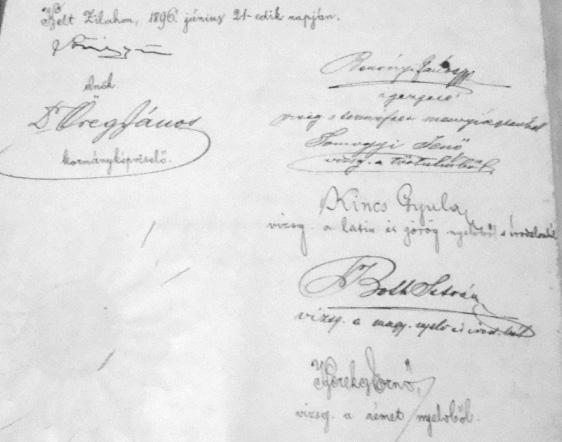 Kelt Zilahon, 1896. június 21-edik napján.
elnök
Dr Öreg János
kormányképviselő.
igazgató
vizsg. a természettan mennyiségtanból
Somogyi Jenő
vizsg. a történelemből
Kincs Gyula
vizsg. a latin és görög nyelvből s irodalomból
Both István
vizsg. a magy. nyelv és irod.ból
Ernő
vizsg. a német nyelvből.